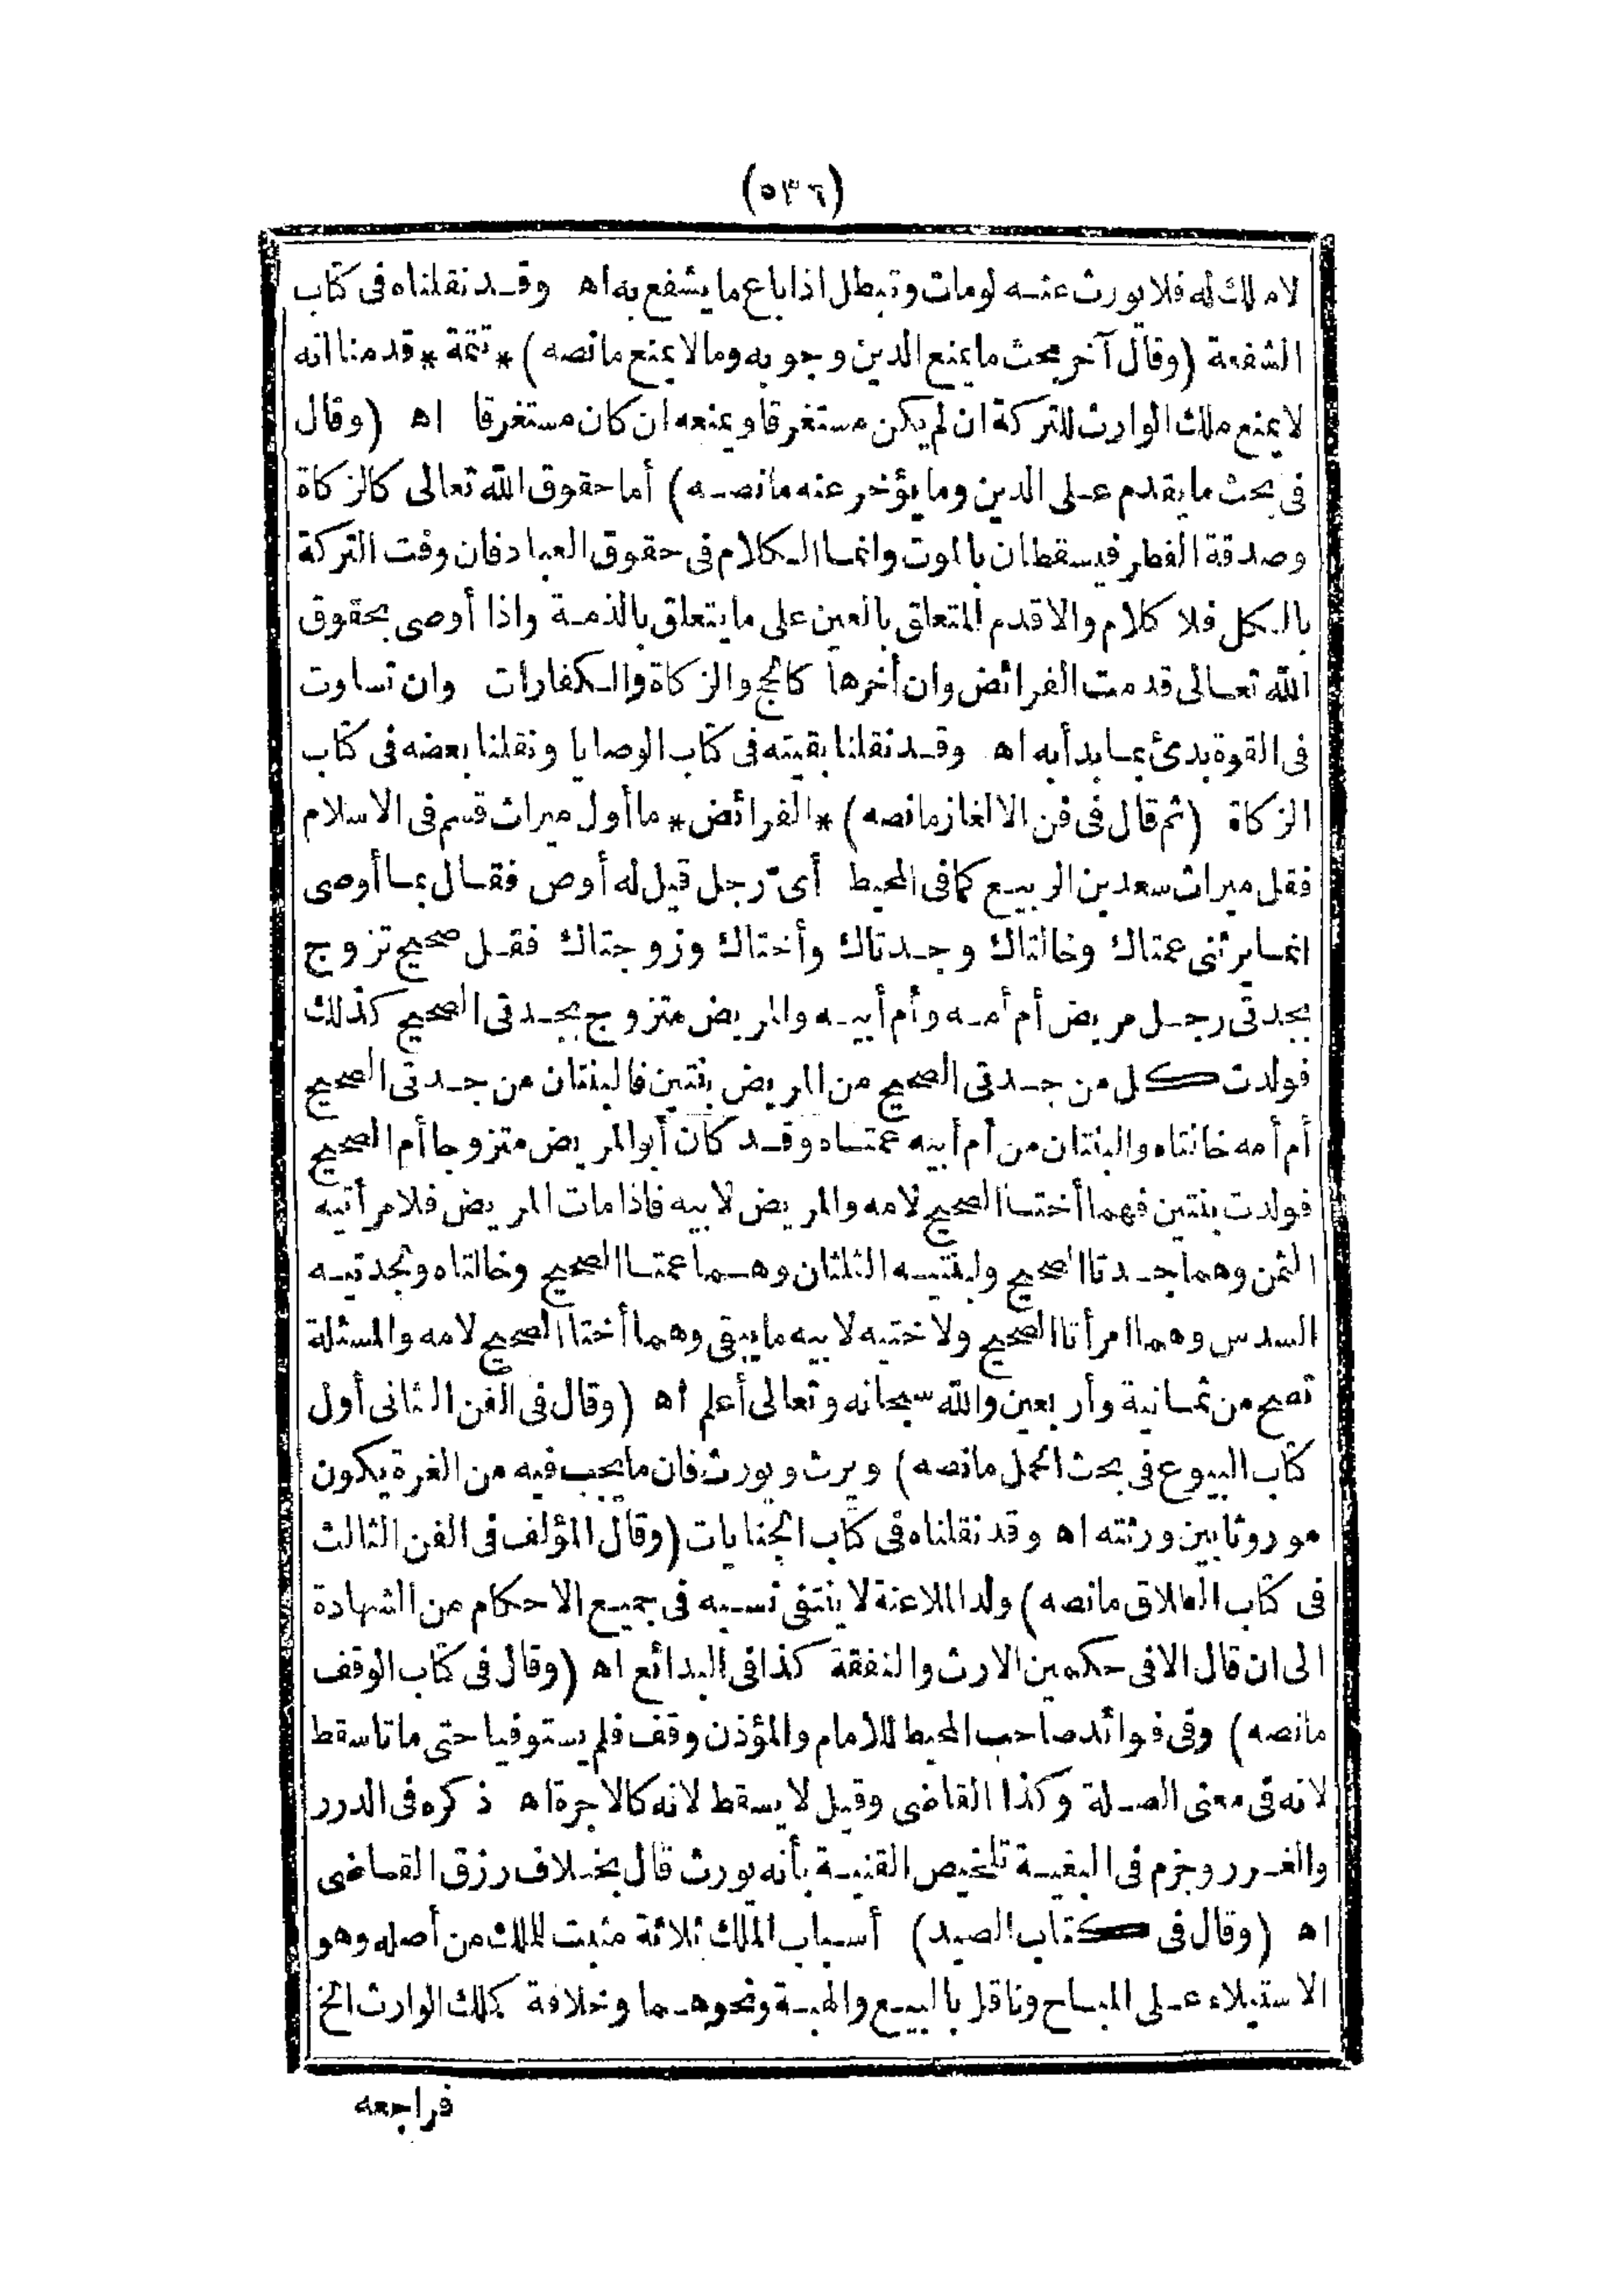 (٥٣٦)
لا ملك له فلا يورث عنه لو مات وتبطل اذا باع ما يشفع به اه وقد نقلناه فى كتاب
الشفعة (وقال آخر بحث ما يمنع الدين وجوبه وما لا يمنع مانصه) * تتمة * قدمنا انه
لا يمنع ملك الوارث للتركة ان لم يكن مستغرقا ويمنعه ان كان مستغرقا اه (وقال
فى بحث ما يقدم على الدين وما يؤخر عنه مانصه) أما حقوق الله تعالى كالزكاة
وصدقة الفطر فيسقطان بالموت وانما الكلام فى حقوق العباد فان وفت التركة
بالكل فلا كلام والا قدم المتعلق بالعين على ما يتعلق بالذمة واذا أوصى بحقوق
الله تعالى قدمت الفرائض وان أخرها كالحج والزكاة والكفارات وان تساوت
فى القوة بدئ بما بدأ به اه وقد نقلنا بقيته فى كتاب الوصايا ونقلنا بعضه فى كتاب
الزكاة (ثم قال فى فن الالغاز مانصه) * الفرائض * ما أول ميراث قسم فى الاسلام
فقل ميراث سعد بن الربيع كما فى المحيط أىّ رجل قيل له أوص فقال بما أوصى
انما يرثنى عمتاك وخالتاك وجدتاك وأختاك وزوجتاك فقل صحيح تزوج
بجدتى رجل مريض أم أمه وأم أبيه والمريض متزوج بجدتى الصحيح كذلك
فولدت كل من جدتى الصحيح من المريض بنتين فالبنتان من جدتى الصحيح
أم أمه خالتاه والبنتان من أم أبيه عمتاه وقد كان أبو المريض متزوجا أم الصحيح
فولدت بنتين فهما أختا الصحيح لامه والمريض لابيه فاذا مات المريض فلامرأتيه
الثمن وهما جدتا الصحيح ولبنتيه الثلثان وهما عمتا الصحيح وخالتاه ولجدتيه
السدس وهما امرأتا الصحيح ولاختيه لابيه ما يبقى وهما أختا الصحيح لامه والمسئلة
تصح من ثمانية وأربعين والله سبحانه وتعالى أعلم اه (وقال فى الفن الثانى أول
كتاب البيوع فى بحث الحمل مانصه) ويرث ويورث فان ما يجب فيه من الغرة يكون
موروثا بين ورثته اه وقد نقلناه فى كتاب الجنايات (وقال المؤلف فى الفن الثالث
فى كتاب الطلاق مانصه) ولد الملاعنة لا ينتفى نسبه فى جميع الاحكام من الشهادة
الى ان قال الا فى حكمين الارث والنفقة كذا فى البدائع اه (وقال فى كتاب الوقف
مانصه) وفى فوائد صاحب المحيط للامام والمؤذن وقف فلم يستوفيا حتى ماتا سقط
لانه فى معنى الصلة وكذا القاضى وقيل لا يسقط لانه كالاجرة اه ذكره فى الدرر
والغرر وجزم فى البغية تلخيص القنية بأنه يورث قال بخلاف رزق القاضى
اه (وقال فى كتاب الصيد) أسباب الملك ثلاثة مثبت للملك من أصله وهو
الاستيلاء على المباح وناقل بالبيع والهبة ونحوهما وخلافة كملك الوارث الخ
فراجعه